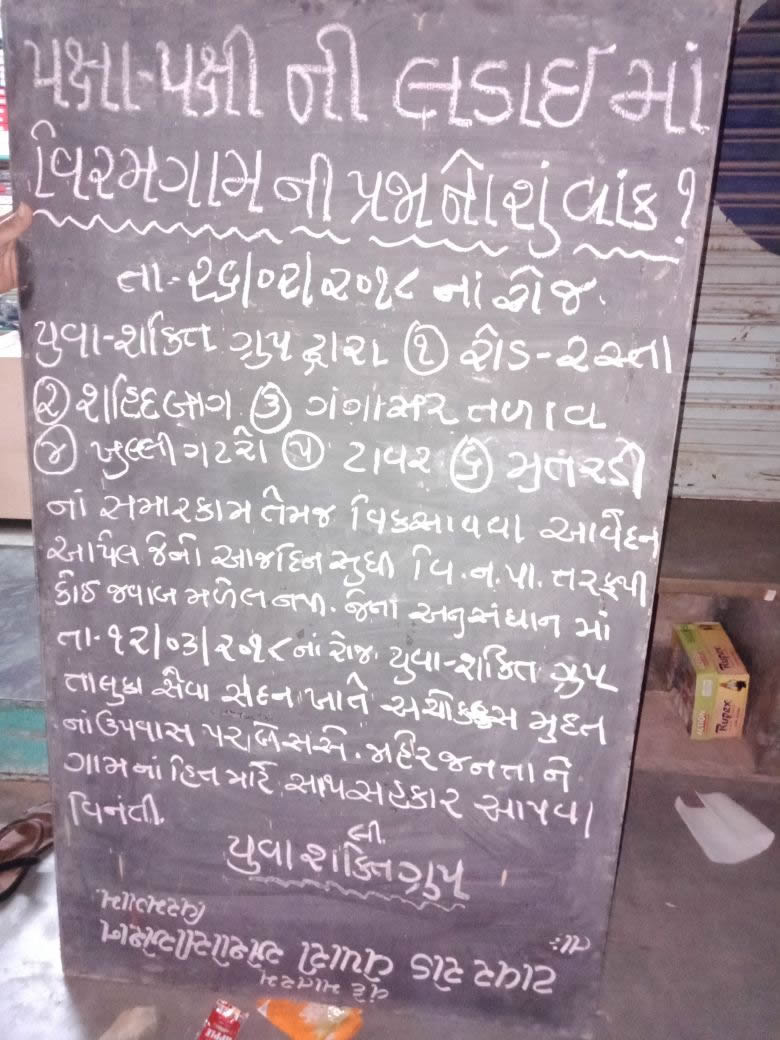 પક્ષા-પક્ષી ની લડાઈ માં
વિરમગામ ની પ્રજા નો શું વાંક ?
તા-૨૬/૦૨/૨૦૧૮ નાં રોજ.
યુવા-શક્તિ ગ્રુપ દ્વારા ૧ રોડ-રસ્તા
૨ શહિદબાગ ૩ ગંગાસર તળાવ
૪ ખુલ્લી ગટરો ૫ ટાવર ૬ મુતરડી
નાં સમારકામ તેમજ વિકસાવવા આવેદન
આપેલ જેનો આજદિન સુધી વિ.ન.પા. તરફથી
કોઈ જવાબ મળેલ નથી. જેનાં અનુસંધાન માં
તા-૧૨/૦૩/૨૦૧૮ નાં રોજ યુવા-શક્તિ ગ્રુપ
તાલુકા સેવા સદન ખાતે અચોક્કસ મુદત
નાં ઉપવાસ પર બેસશે. જાહેર જનતા ને
ગામ નાં હિત માટે સાથ સહકાર આપવા
વિનંતી.
લી.
યુવા શક્તિ ગ્રુપ
ટાવર રોડ વેપારી
Rupex